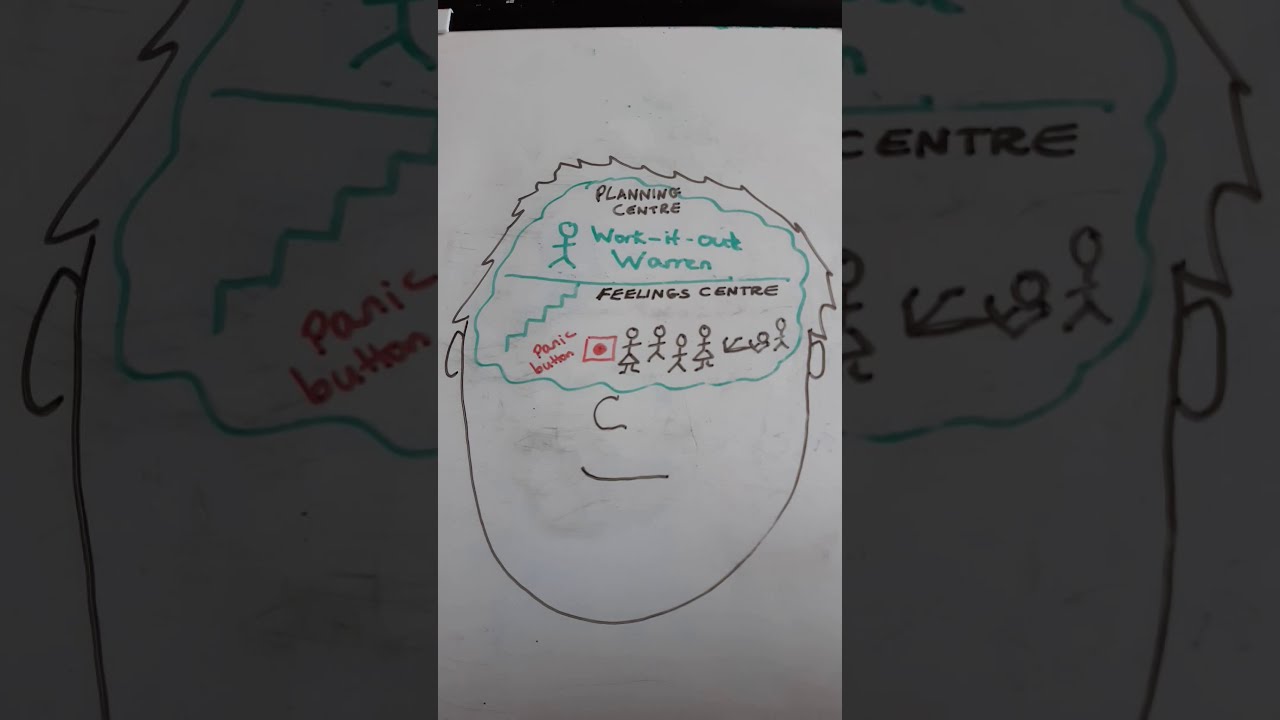 PLANNING
CENTRE
Work-it-out
Warren
FEELINGS CENTRE
Panic
button